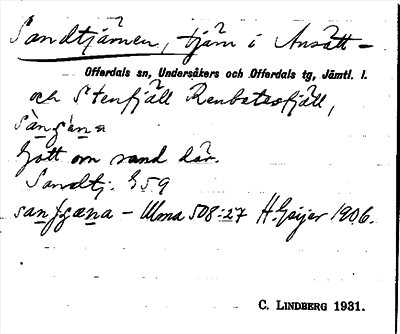 Sandtjärnen, tjärn i Ansätt-
Offerdals sn, Undersåkers och Offerdals tg, Jämtl. l.
och Stenfjäll Renbetesfjäll,
Gott om sand där.
Sandtj. G59
– Ulma 508:27 H. Geijer 1906.
C. LINDBERG 1931.